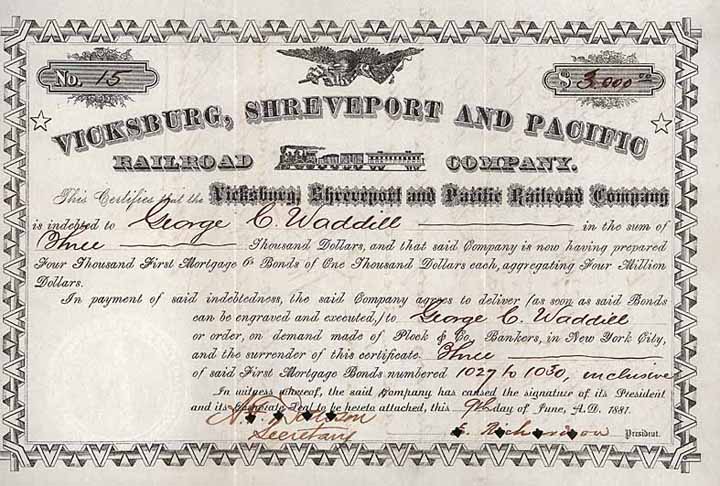 No. 15
$ 3,000 00
VICKSBURG, SHREVEPORT AND PACIFIC
RAILROAD COMPANY.
This Certifies that the Vicksburg, Shreveport and Pacific Railroad Company
is indebted to George C. Waddill in the sum of
Three Thousand Dollars, and that said Company is now having prepared
Four Thousand First Mortgage 6% Bonds of One Thousand Dollars each, aggregating Four Million
Dollars.
In payment of said indebtedness, the said Company agrees to deliver (as soon as said Bonds
can be engraved and executed,) to George C. Waddill
or order, on demand made of Plock & Co., Bankers, in New York City,
and the surrender of this certificate. Three
of said First Mortgage Bonds numbered 1027 to 1030, inclusive
In witness whereof, the said Company has caused the signature of its President
and its Corporate Seal to be hereto attached, this 9th day of June, A.D. 1881.
Secretary
E. Richardson President.